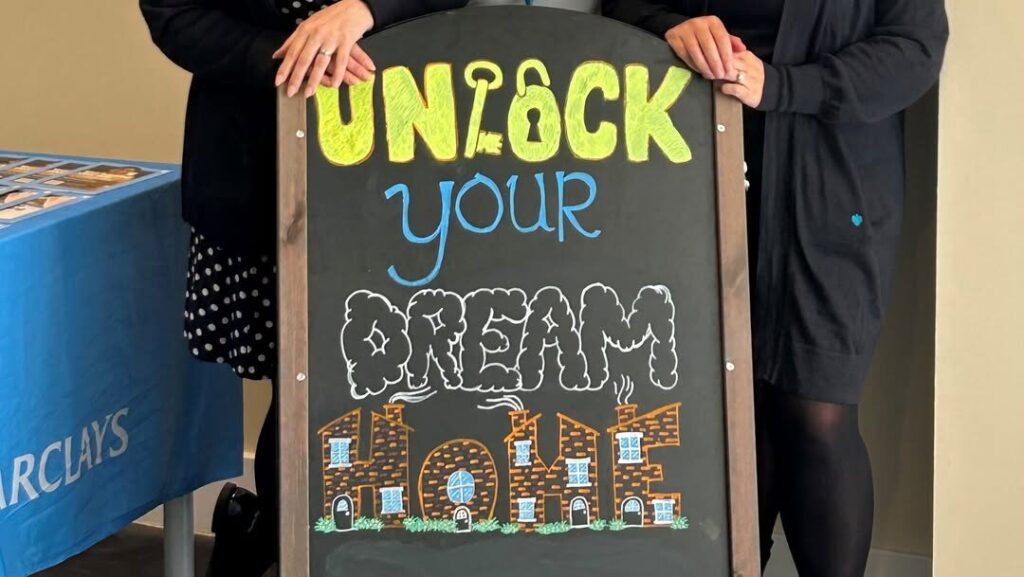 UNLOCK
YOUR
DREAM
HOME
ARCLAYS